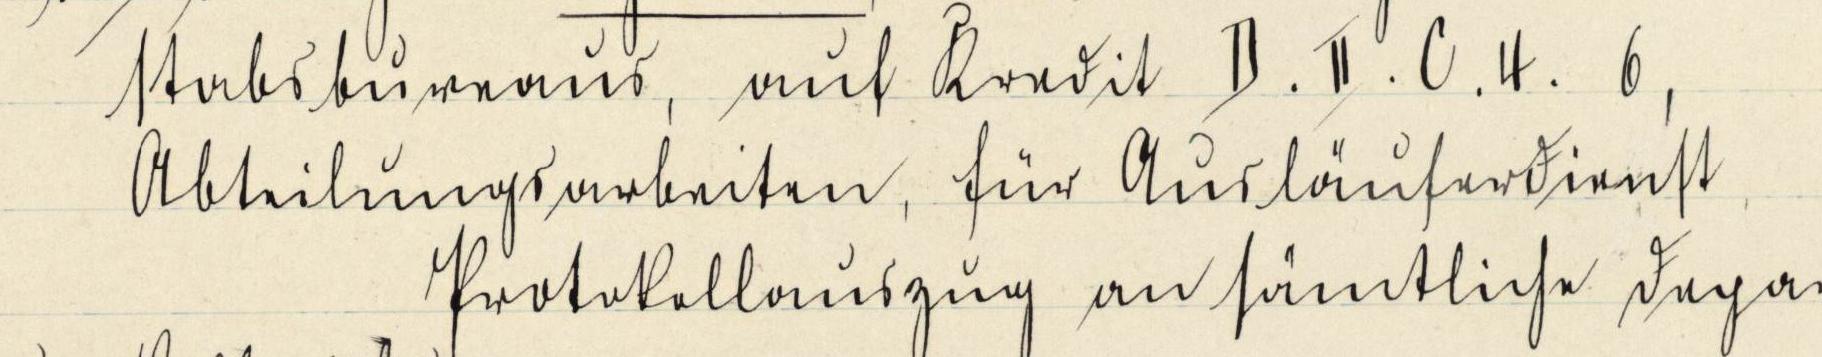 stabsbureaus, auf Kredit D. II. C. 4. 6,
Abteilungsarbeiten, für Ausläuferdienst,
Protokollauszug an sämtliche Depar